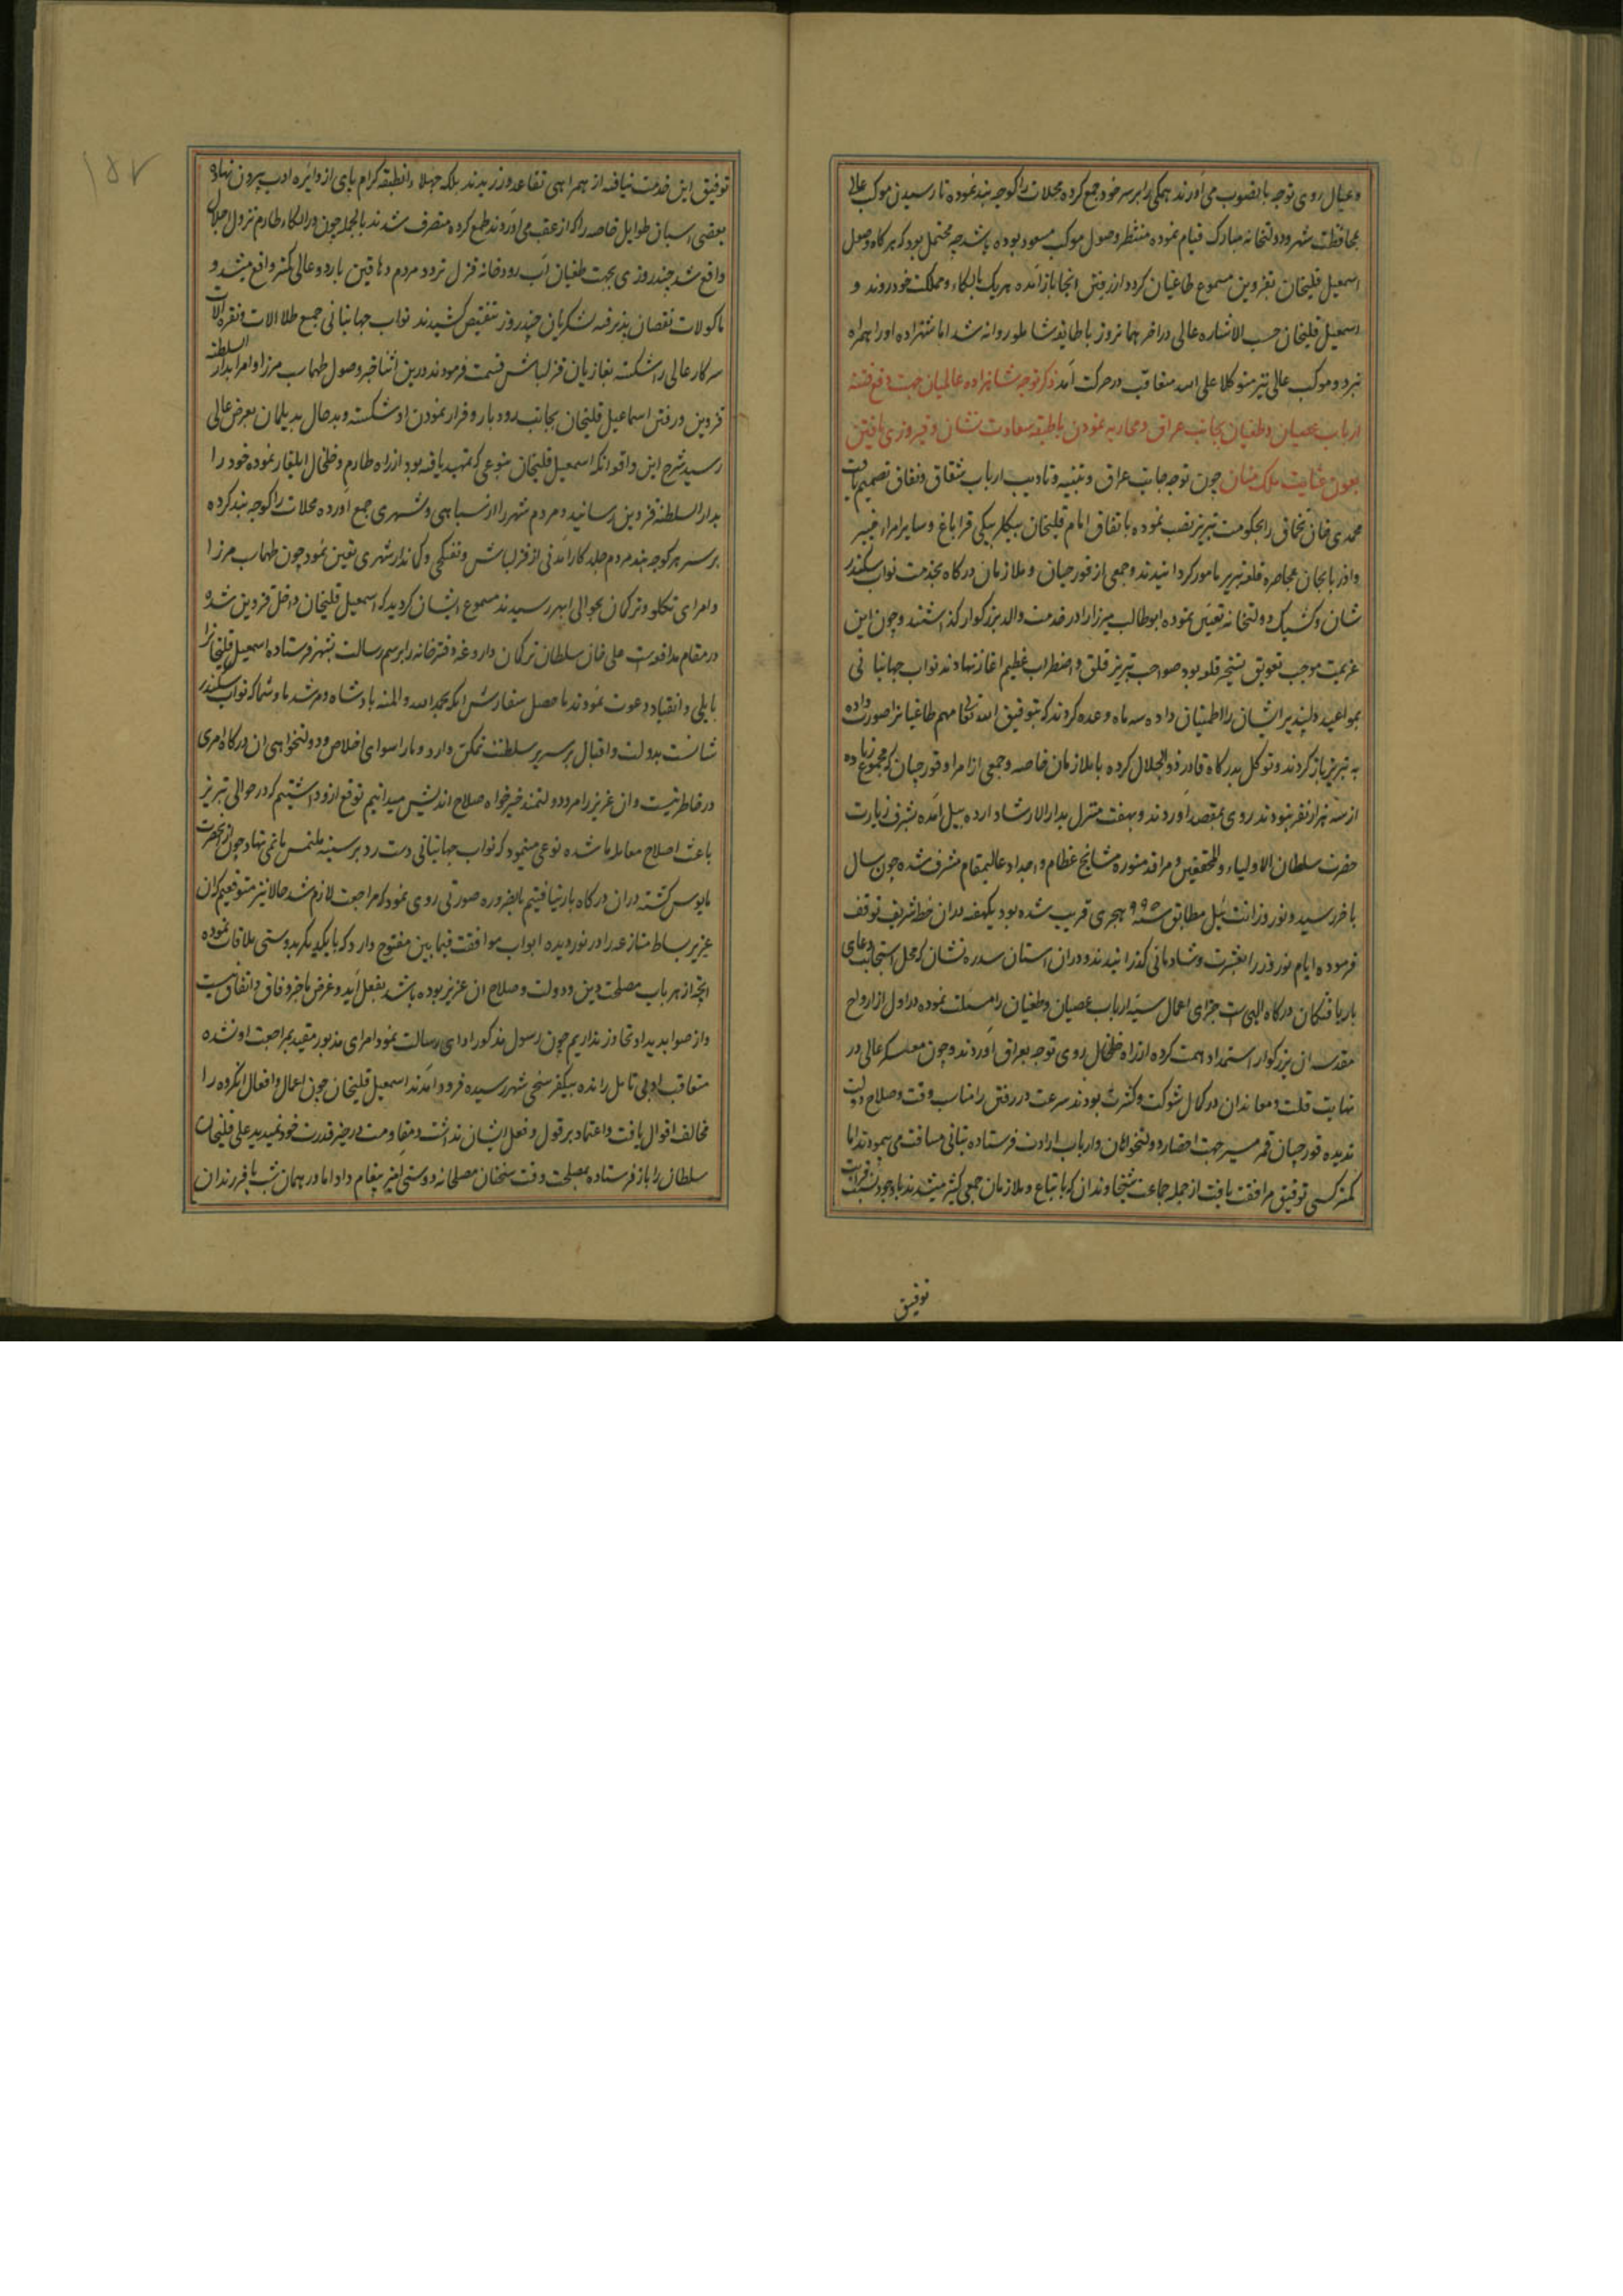 و عیال روی توجه بانصوب می‌آورند همکی را بر سر خود جمع کرده محلات را کوچه بند نموده تا رسیدن موکب عالی
بمحافظت شهر و دولتخانه مبارک قیام نموده منتظر وصول موکب مسعود بوده باشد چه محتمل بود که هرکاه وصول
اسمعیل قلیخان بقزوین مسموع طاغیان کردد از رفتن انجا باز آمده هر یک بالکاء و مملکت خود روند و
اسمعیل قلیخان حسب الاشاره عالی در آخر همانروز با طایفه شاملو روانه شد اما شهزاده او را همراه
نبرد و موکب عالی نیز متوکلا علی الله متعاقب در حرکت آمد ذکر توجه شاهزاده عالمیان جهت دفع فتنه
ارباب عصیان و طغیان بجانب عراق و محاربه نمودن با طبقه سعادت نشان و فیروزی یافتن
بعون عنایت ملک منان چون توجه جانب عراق و تنبیه و تادیب ارباب شقاق و نفاق تصمیم یافت
محمدی خان تخماق را بحکومت تبریز نصب نموده باتفاق امام قلیخان بیکلربیکی قراباغ و سایر امراء
و اذربایجان بمحاصره قلعه تبریز مامور کردانیدند و جمعی از قورچیان و ملازمان درکاه بخدمت نواب سکندر
شان و کشیک دولتخانه تعیین نموده ابوطالب میرزا را در خدمت والد بزرکوار کذاشتند و چون این
عزیمت موجب تعویق تسخیر قلعه بود صواحب تبریز قلق و اضطراب عظیم آغاز نهادند نواب جهانبانی
بمواعید دلپذیر ایشان را اطمینان داده سه ماه وعده کردند که بتوفیق الله تعالی مهم طاغیانرا صورت داده
به تبریز باز کردند و توکل بدرکاه قادر ذوالجلال کرده با ملازمان خاصه و جمعی از امرا و قورچیان که مجموع زیاده
از سه هزار نفر نبودند روی بمقصد آوردند و بهفت منزل بدارالارشاد اردبیل آمده بشرف زیارت
حضرت سلطان الاولیاء و المحققین و مراقد منوره مشایخ عظام و اجداد عالیمقام مشرف شده چون سال
باخر رسید و نوروز ایت ئیل مطابق سنه ۹۹۵ هجری قریب شده بود یکهفته دران خطه شریف توقف
فرموده ایام نوروز را بعشرت و شادمانی کذرانیدند و دران استان سدره نشان که محل استجابت دعای
باریافتکان درکاه الهی است جزای اعمال سیئه ارباب عصیان و طغیان را مسئلت نموده از ارواح
مقدسه ان بزرکوار استمداد همت کرده از راه خلخال روی توجه بعراق آوردند و چون معسکر عالی در
نهایت قلت و معاندان در کمال شوکت و کثرت بودند سرعت در رفتن را مناسب وقت و صلاح دولت
ندیده قورچیان قمر مسیر جهت احضار دولتخواهان و ارباب ارادت فرستاده بتانی مسافت می‌پیمودند اما
کمتر کسی توفیق مرافقت یافت از جمله جماعت شیخاوندان که با تباع و ملازمان جمعی کثیر میشدند باوجود نسبت قرابت
توفیق
توفیق این خدمت نیافته از همراهی تقاعد ورزیدند بلکه جهلاء انطبقه کرام پای از دایره ادب بیرون نهاده
بعضی اسبان طوایل خاصه را که از عقب می‌آوردند طمع کرده متصرف شدند بالجمله چون در الکاء طارم نزول اجلال
واقع شد چند روزی بجهت طغیان آب رودخانه قزل تردد مردم دهاقین باردوی عالی کمتر واقع میشد و
ماکولات نقصان پذیرفته لشکریان چند روز تنقیص کشیدند نواب جهانبانی جمیع طلا آلات و نقره آلات
سرکار عالی را شکسته بغازیان قزلباش قسمت فرمودند درین اثنا خبر وصول طهماسب میرزا و امرا بدار السلطنه
قزوین و رفتن اسماعیل قلیخان بجانب رودبار و فرار نمودن او شکسته و بدحال بدیلمان بعرض عالی
رسید شرح این واقعه انکه اسمعیل قلیخان بنوعی که تمهید یافته بود از راه طارم و خلخال ایلغار نموده خود را
بدار السلطنه قزوین رسانید و مردم شهر را از سپاهی و شهری جمع آورده محلات را کوچه بند کرده
بر سر هر کوچه بند مردم جلد کارآمدنی از قزلباش و تفنکچی و کماندار شهری تعیین نمود چون طهماسب میرزا
و امرای تکلو و ترکمان بحوالی ابهر رسیدند مسموع ایشان کردید که اسمعیل قلیخان داخل قزوین شده
در مقام مدافعه است علی خان سلطان ترکمان داروغه دفترخانه را برسم رسالت بشهر فرستاده اسمعیل قلیخانرا
بایلی و انقیاد دعوت نمودند ماحصل سفارش انکه بحمد الله و المنه پادشاه و مرشد ما و شما که نواب سکندر
شانست بدولت و اقبال بر سریر سلطنت تمکن دارد و ما را سوای اخلاص و دولتخواهی ان درکاه امری
در خاطر نیست و ان عزیز را مرد دولتمند خیرخواه صلاح اندیش میدانیم توقع ازو داشتیم که در حوالی تبریز
باعث اصلاح معامله ما شده نوعی مینمود که نواب جهانبانی دست رد بر سینه ملتمس ما نمی نهاد چون از انحضرت
مایوس کشته دران درکاه بار نیافتیم بالضروره صورتی روی نمود که مراجعت لازم شد حالا نیز متوقعیم که ان
عزیز بساط منازعه را در نوردیده ابواب موافقت فیمابین مفتوح دارد که با یکدیکر بدوستی ملاقات نموده
انچه از هر باب مصلحت دین و دولت و صلاح ان عزیز بوده باشد بفعل آید و غرض ما جز وفاق و اتفاق نیست
و از صوابدید او تجاوز نداریم چون رسول مذکور ادای رسالت نمود امرای مذبور مقید بمراجعت او نشده
متعاقب او بی تامل رانده بیکفرسخی شهر رسیده فرود آمدند اسمعیل قلیخان چون اعمال و افعال انکروه را
مخالف اقوال یافت و اعتماد بر قول و فعل ایشان نداشت و مقاومت در حیز قدرت خود نمیدید علی قلیخان
سلطان را باز فرستاده بمصلحت وقت سخنان مصلحانه و دوستی آمیز پیغام داد اما در همان شب با فرزندان